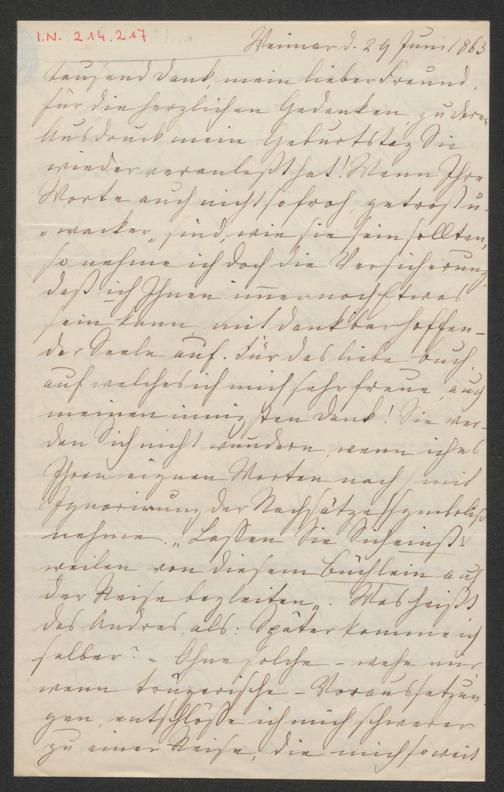 I.N. 214.217
Weimar d. 29 Juni 1863
Tausend Dank, mein lieber Freund,
für die herzlichen Gedanken zu deren
Ausdruck mein Geburtstag Sie
wieder veranlaßt hat! Wenn Ihre
Worte auch nicht so froh, getrost u.
"wacker" sind, wie sie sein sollten,
so nehme ich doch die Versicherung,
daß ich Ihnen immer noch Etwas
sein kann mit dankbar hoffen-
der Seele auf. Für das liebe Buch,
auf welches ich mich sehr freue, auch
meinen innigsten Dank! Sie wer-
den Sich nicht wundern wenn ich es
Ihren eignen Worten nach, mit
Ignorirung der Nachsätze symbolisch
nehme. "Lassen Sie Sich einst-
weilen von diesem Büchlein auf
der Reise begleiten". Was heißt
das Andres, als: Später komme ich
selber? – Ohne solche – wehe mir
wenn trügerische – Voraussetzun-
gen, entschlösse ich mich schwerer
zu einer Reise, die mich so weit